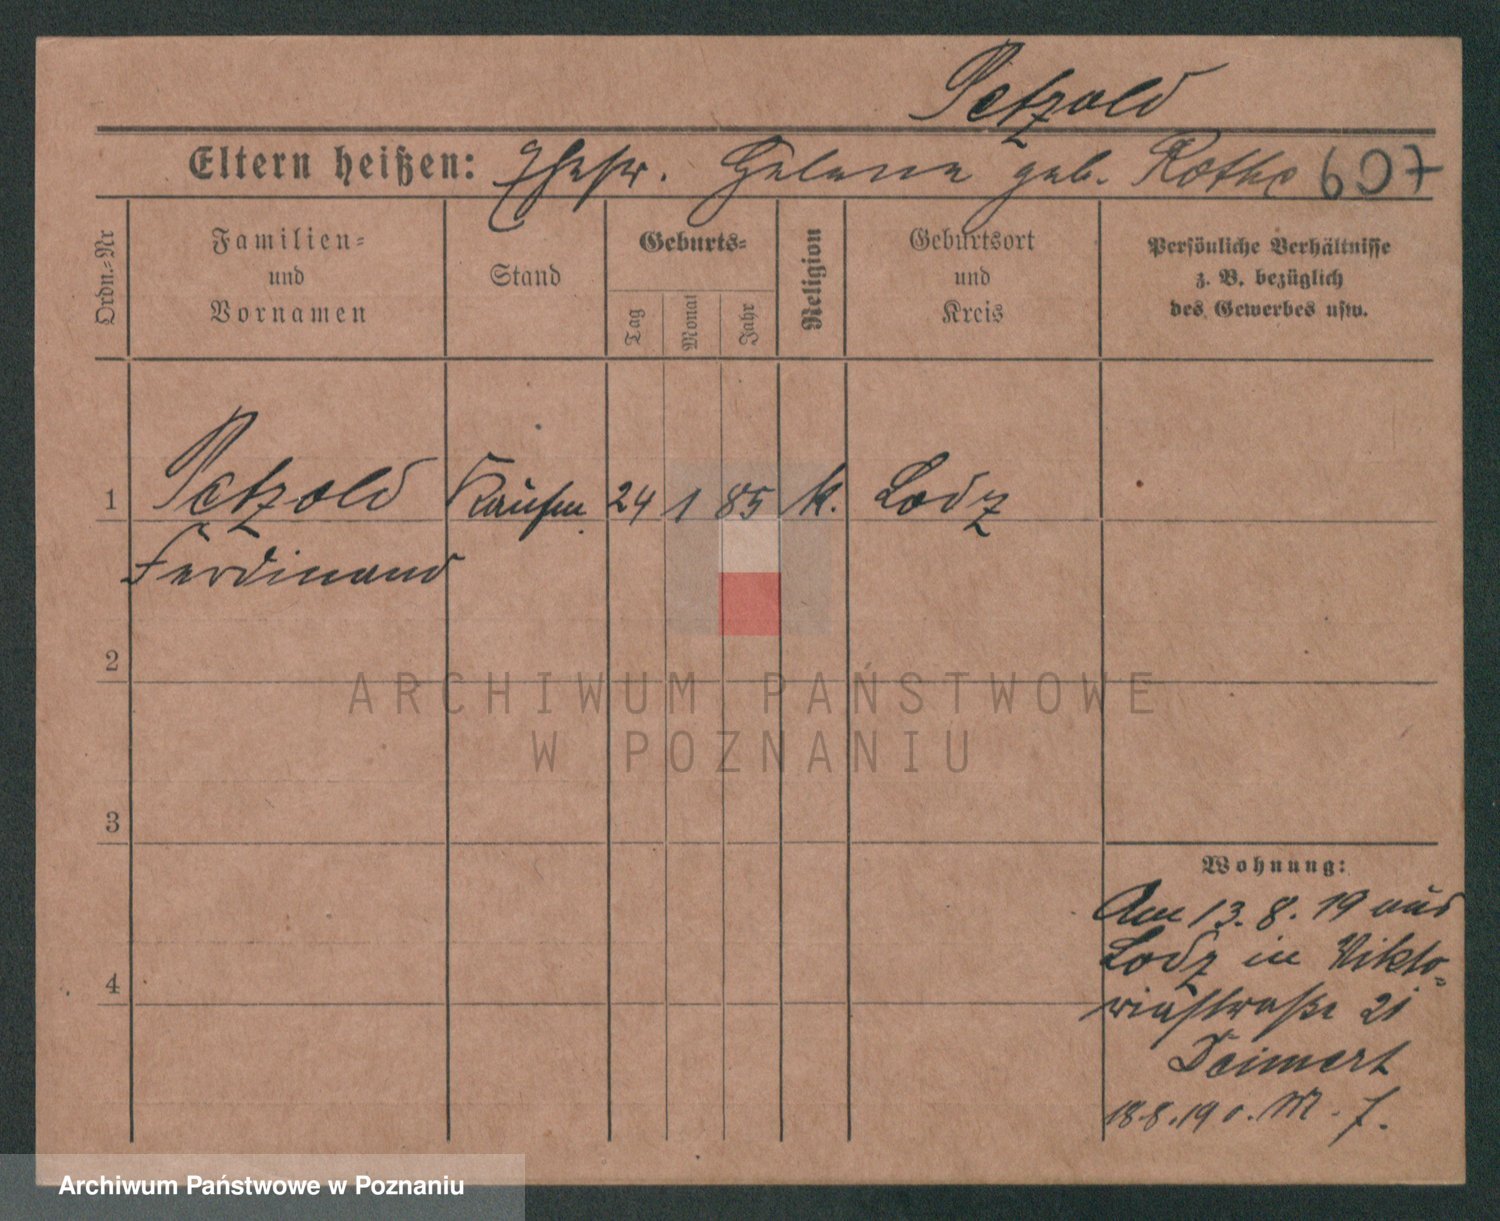 Petzold
Eltern heißen: Ehefr. Helene geb. Rothe 607
Ordn.-Nr
Familien-
und
Vornamen
Stand
Geburts-
Tag
Monat
Jahr
Religion
Geburtsort
und
Kreis
Persönliche Verhältnisse
z. B. bezüglich
des Gewerbes usw.
1 Petzold Kaufm. 24 1 85 k. Lodz
Ferdinand
2
ARCHIWUM PAŃSTWOWE
W POZNANIU
3
Wohnung:
Am 13.8.19 aus
Lodz in Vikto-
riastraße 21
4
18.8.19 v. M. 7.
Archiwum Państwowe w Poznaniu